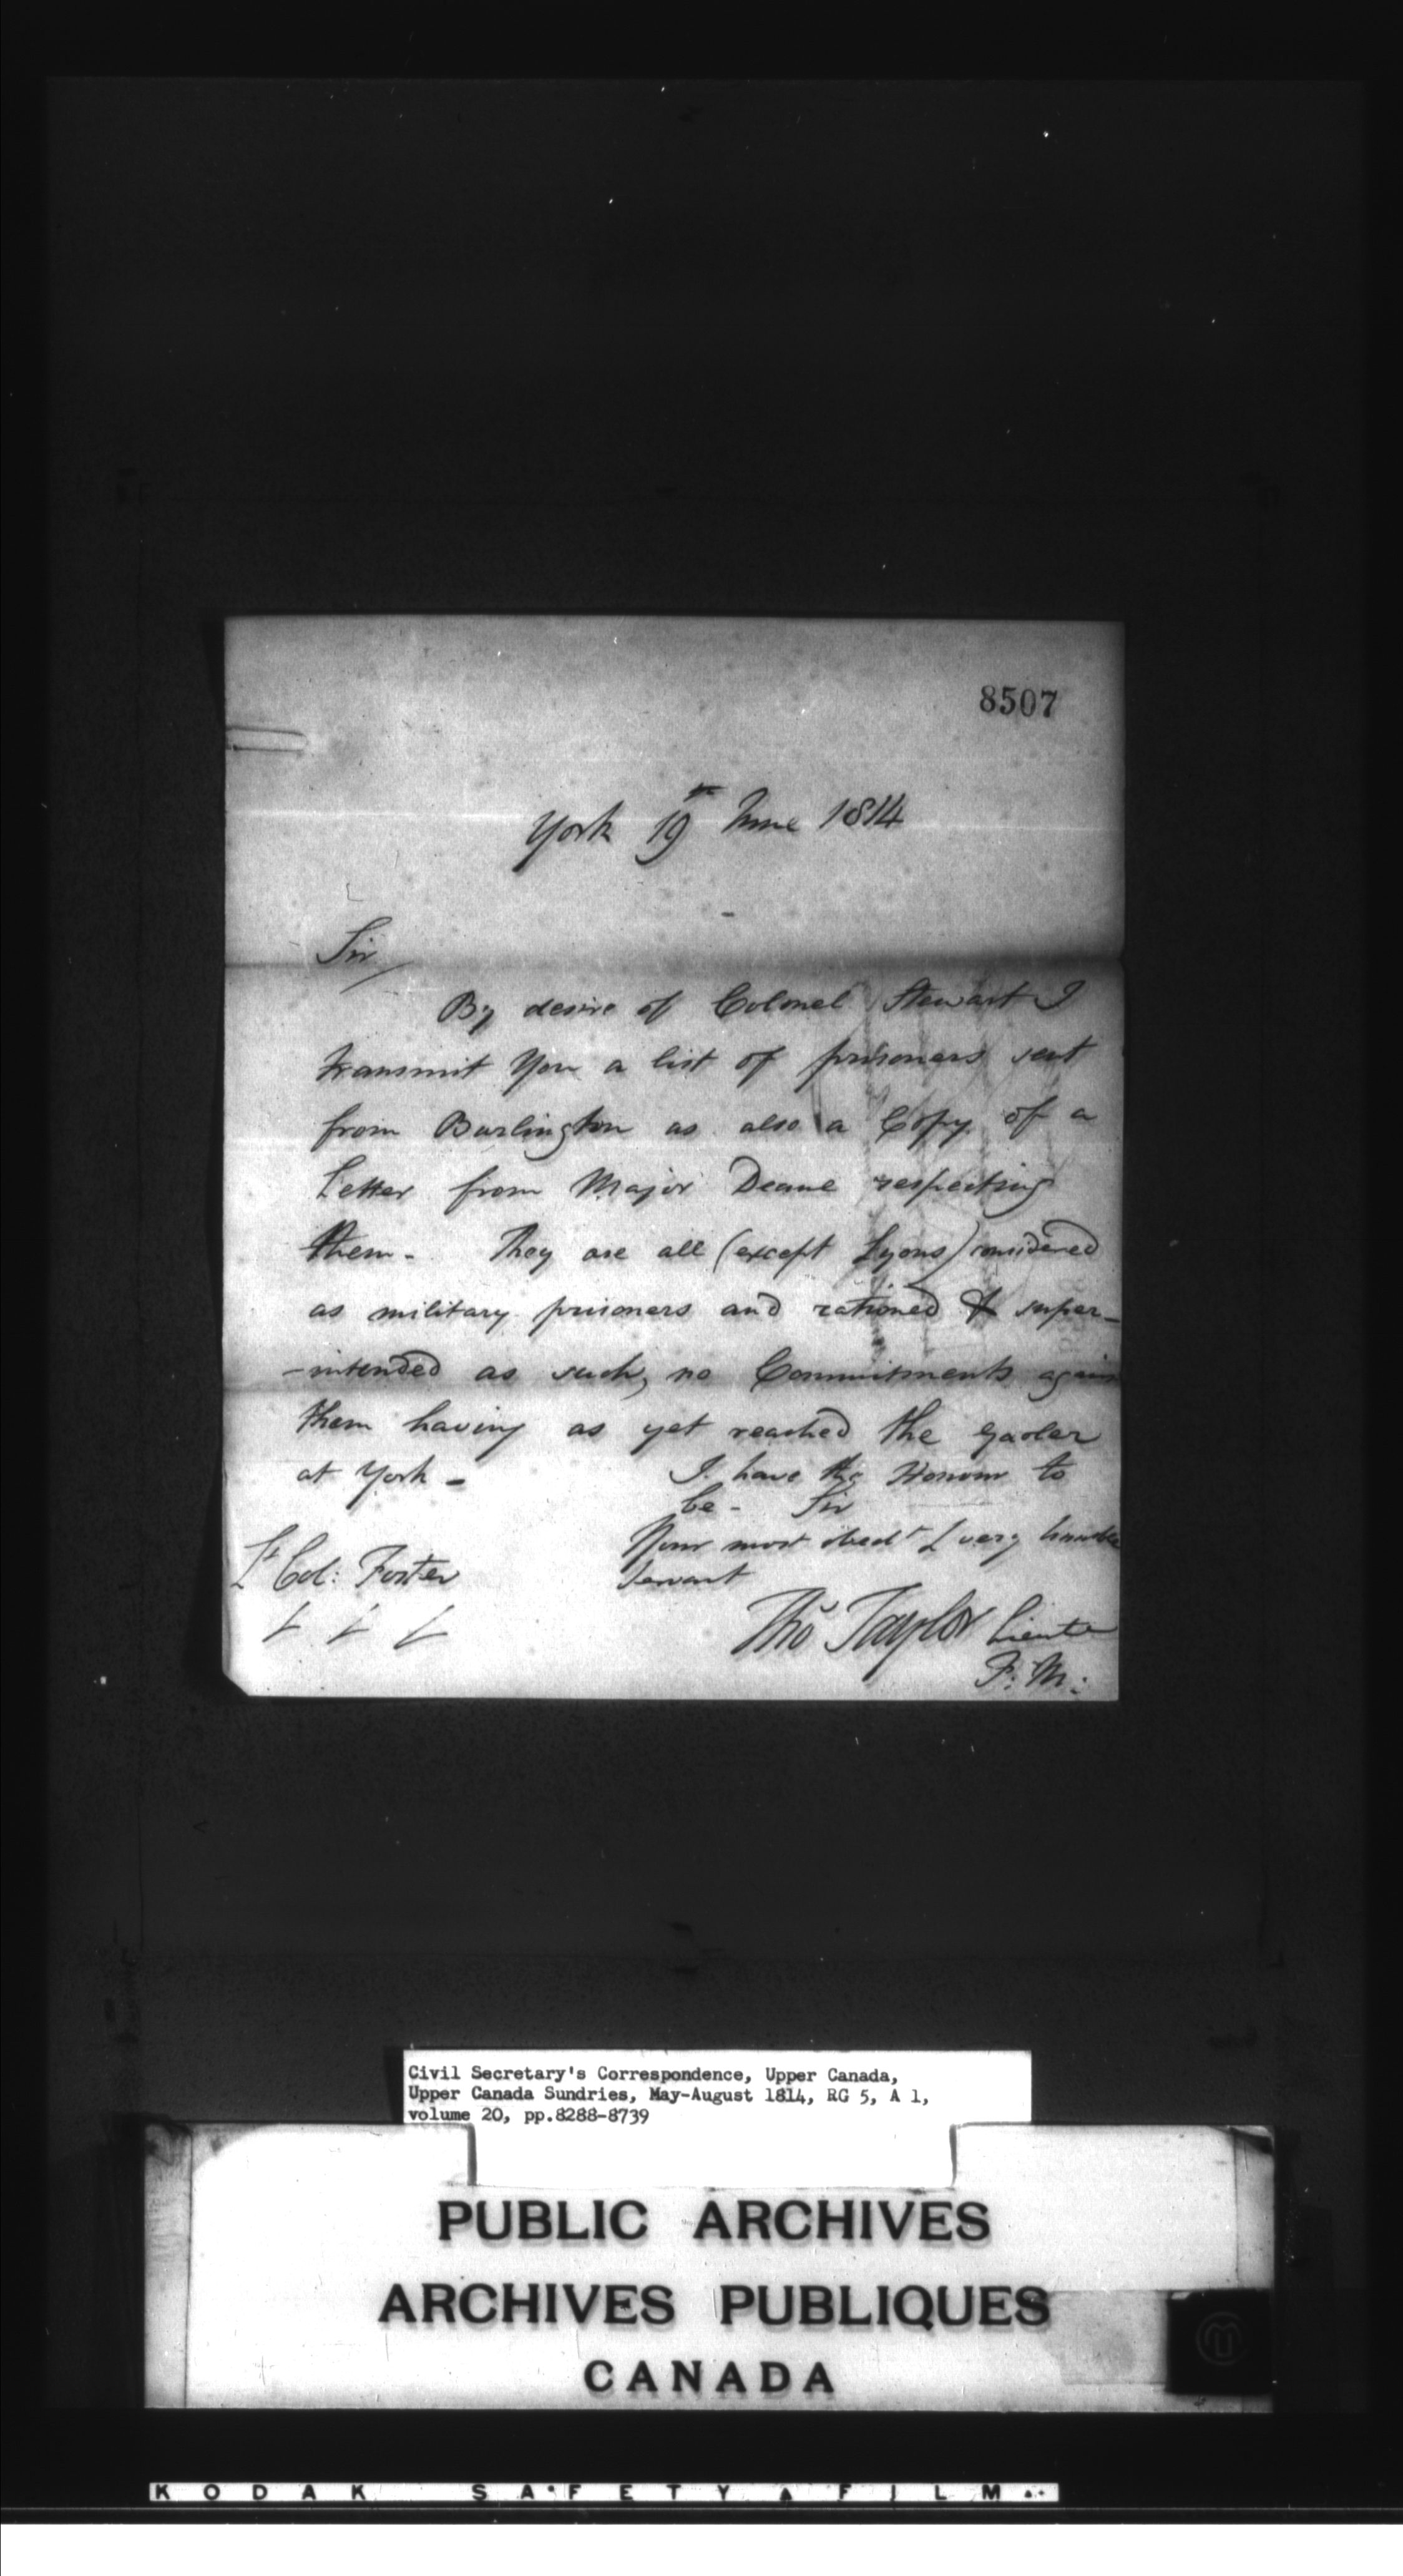 8507
York 19th June 1814
Sir
By desire of Colonel Stewart I
transmit You a list of prisoners sent
from Burlington as also a Copy of a
Letter from Major Deane respecting
them - They are all (except Lyons) considered
as military prisoners and rationed & super-
-intended as such, no Commitments again
them having as yet reached the Gaoler
at York -
I have the Honour to
be - Sir
Your most obedt & very humble
Servant
Lt Col: Foster
Tho Taylor Lieute
F: M:
Civil Secretary's Correspondence, Upper Canada,
Upper Canada Sundries, May-August 1814, RG 5, A 1,
volume 20, pp.8288-8739
PUBLIC ARCHIVES
ARCHIVES PUBLIQUES
CANADA
KODAK SAFETY FILM